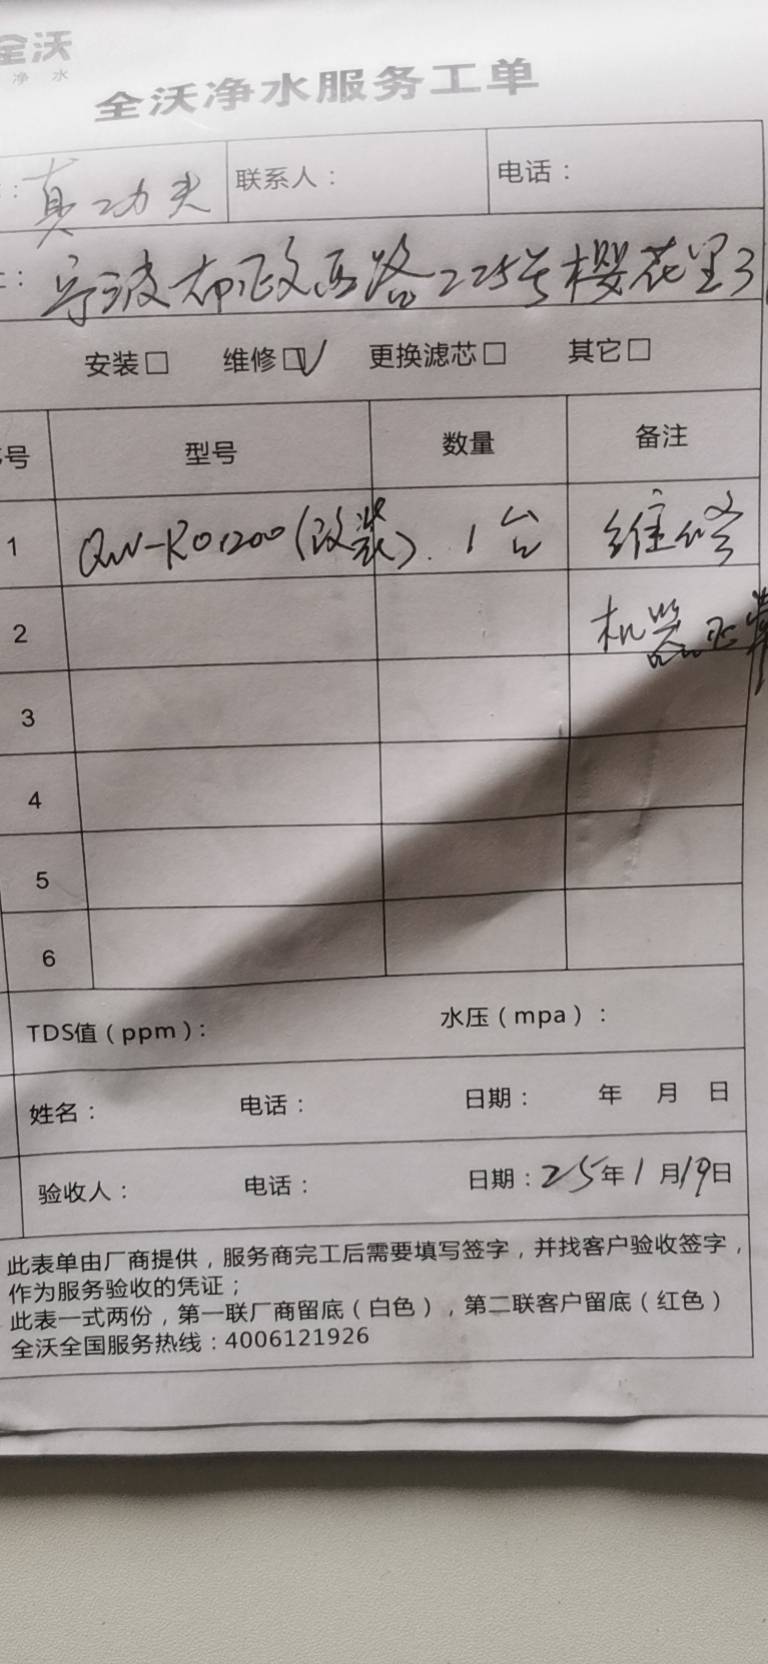 全沃
净水
全沃净水服务工单
：真功夫 联系人： 电话：
：宁波布政西路225号樱花里3
安装□ 维修☑ 更换滤芯□ 其它□
号 型号 数量 备注
1 QW-RO1200(改装). 1台 维修
2 机器正常
3
4
5
6
TDS值（ppm）： 水压（mpa）：
姓名： 电话： 日期： 年 月 日
验收人： 电话： 日期：25年1月19日
此表单由厂商提供，服务商完工后需要填写签字，并找客户验收签字，
作为服务验收的凭证；
此表一式两份，第一联厂商留底（白色），第二联客户留底（红色）
全沃全国服务热线：4006121926